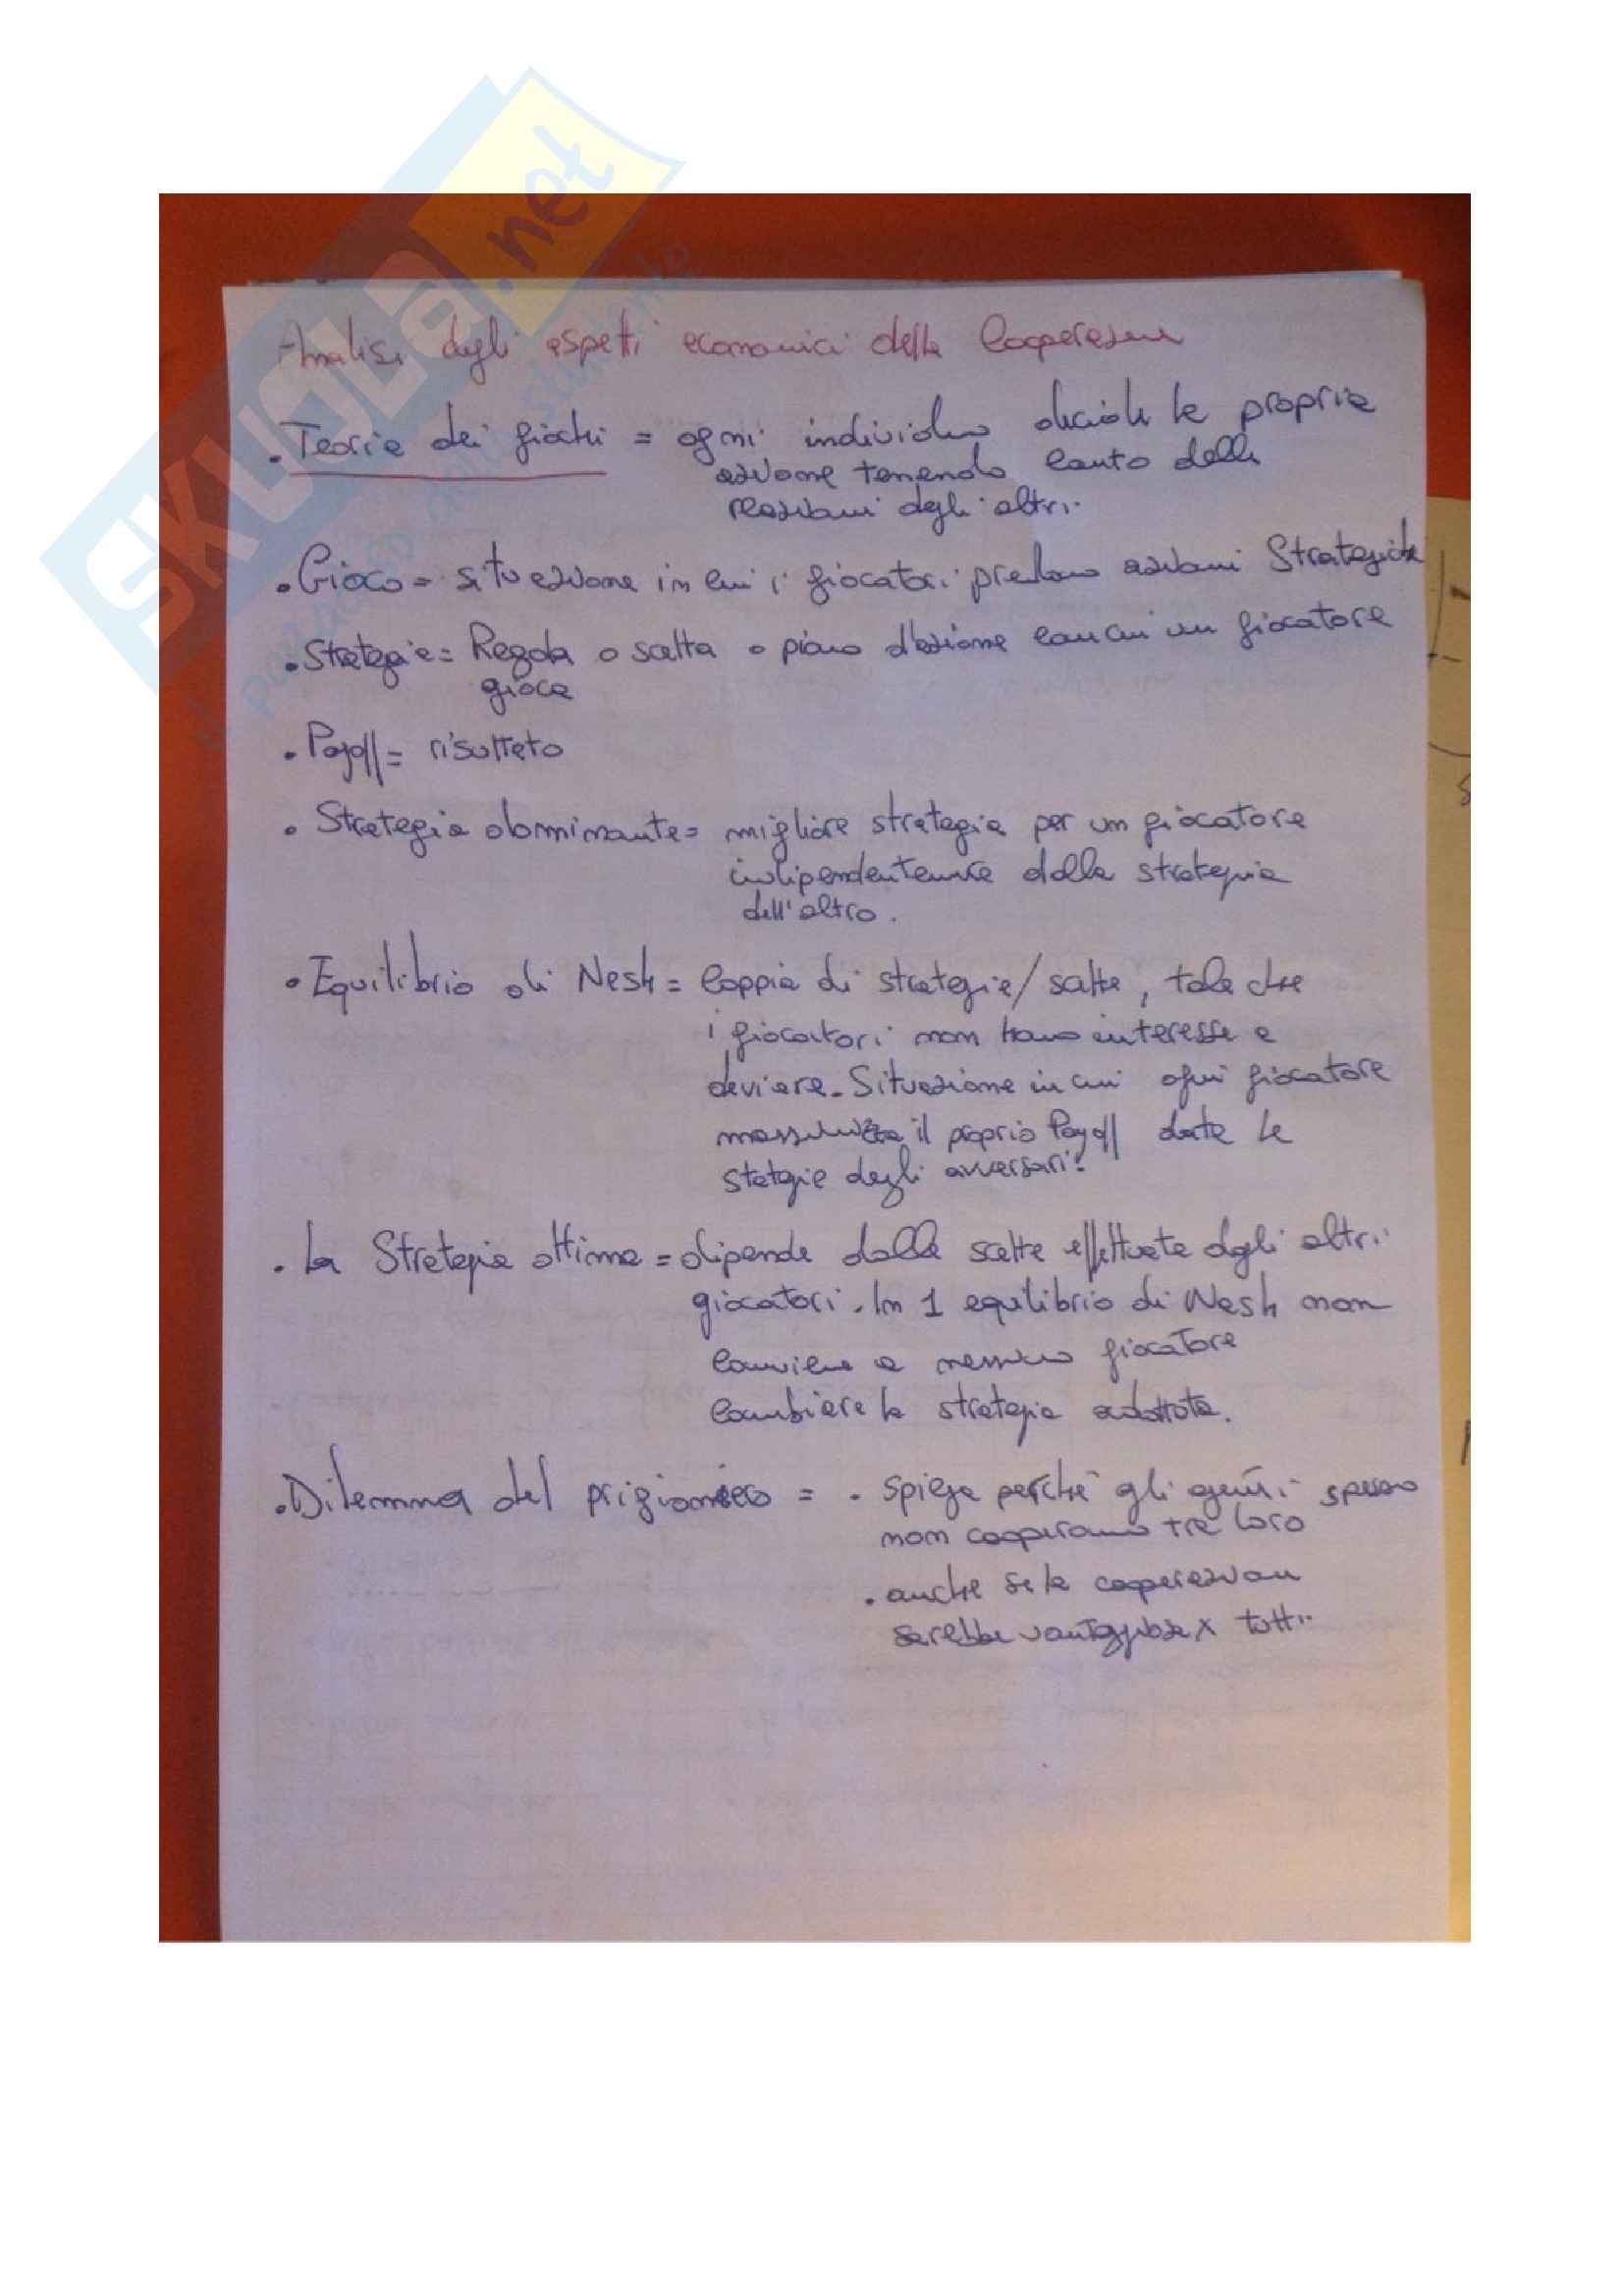 SKUOLA.net
Analisi degli aspetti economici della Cooperazione
• Teoria dei giochi = ogni individuo decide la propria
azione tenendo conto delle
reazioni degli altri.
• Gioco = situazione in cui i giocatori prendono azioni Strategiche
• Strategie = Regola o scelta o piano d'azione con cui un giocatore
gioca
• Payoff = risultato
• Strategia dominante = migliore strategia per un giocatore
indipendentemente dalla strategia
dell'altro.
• Equilibrio di Nash = Coppia di strategie/scelte, tale che
i giocatori non hanno interesse a
deviare. Situazione in cui ogni giocatore
massimizza il proprio Payoff date le
stategie degli avversari.
• La Strategia ottima = dipende dalle scelte effettuate dagli altri
giocatori. In 1 equilibrio di Nash non
conviene a nessuno giocatore
cambiare la strategia adottata.
• Dilemma del prigioniero = • Spiega perchè gli agenti spesso
non cooperano tra loro
• anche se la cooperazione
sarebbe vantaggiosa x tutti